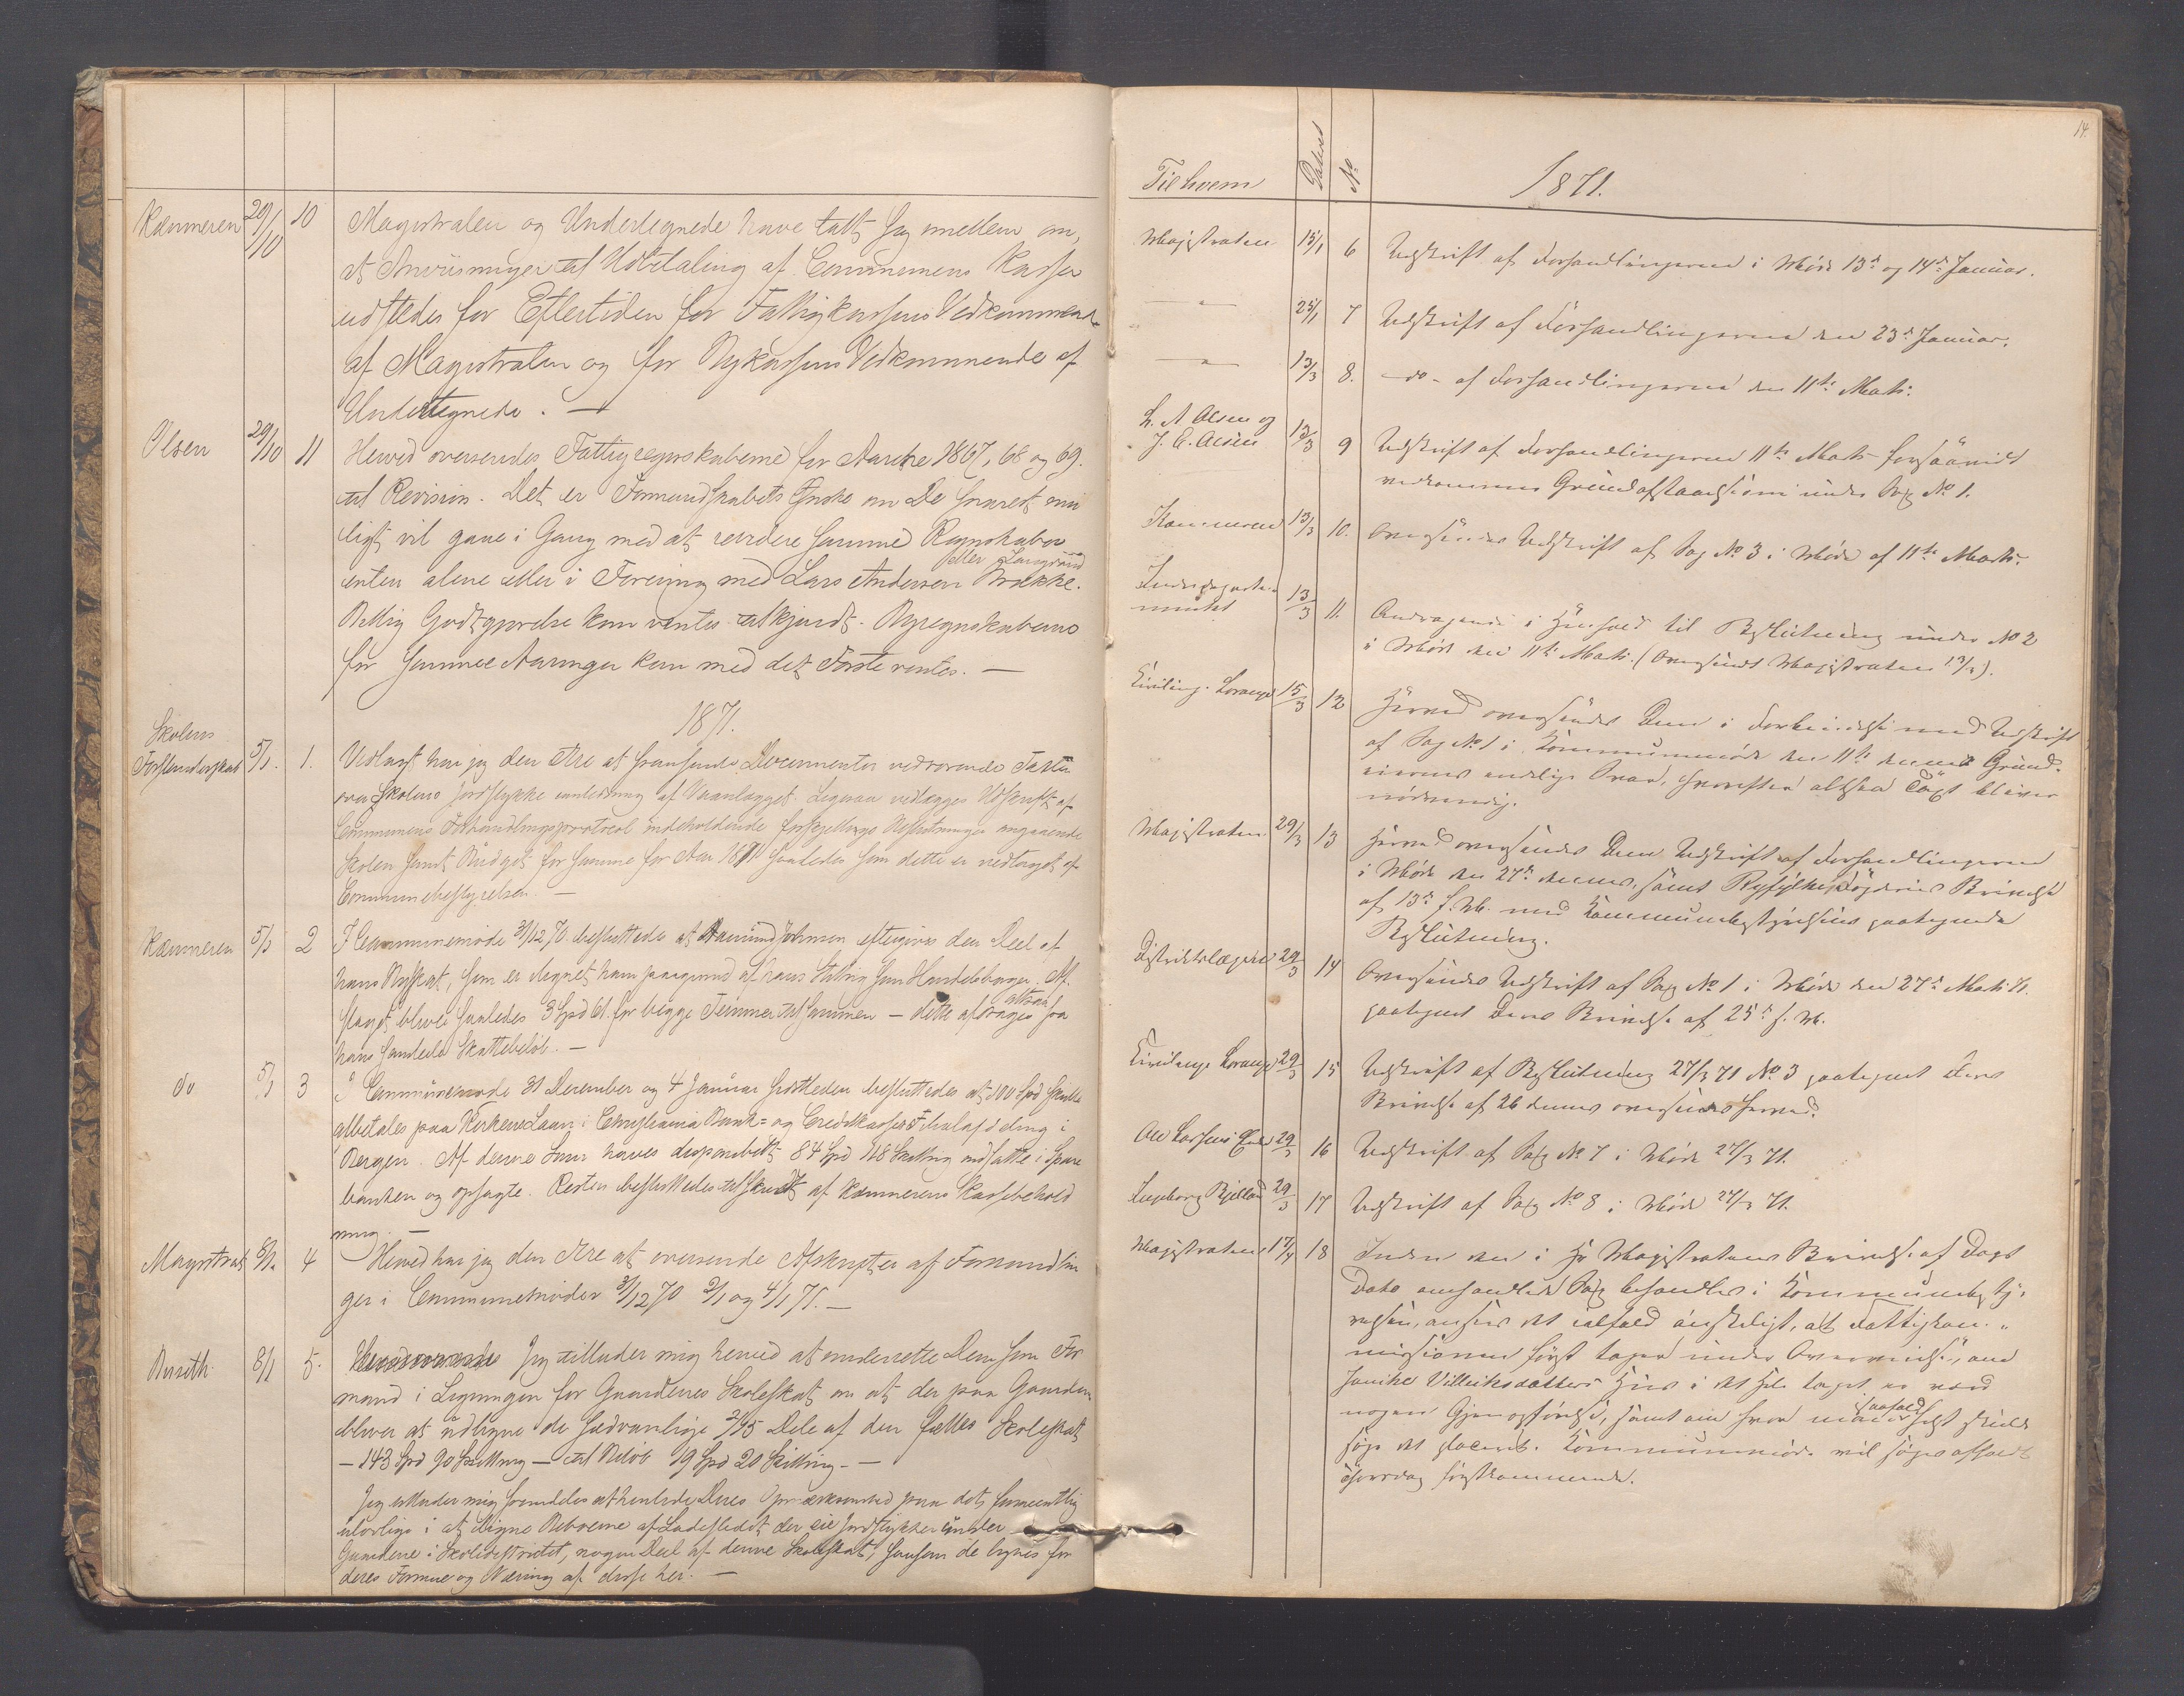 Kæmneren 29/10 10 Magistraten og Undertegnede have talt sig imellem om,
at Anviisninger til Udbetaling af Communens Kasser
udstedes for Eftertiden for Fattigkassens Vedkommende
af Magistraten og for Bykassens Vedkommende af
Undertegnede. —
Olsen 29/10 11 Herved oversendes Fattigregnskaberne for Aarene 1867, 68 og 69.
til Revision. Det er Formandskabets Ønske om De snarest mu
ligt vil gaae i Gang med at revidere samme Regnskaber
enten alene eller i Forening med Lars Andersen Brække.
Billig Godtgjørelse kan ventes tilkjendt. Byregnskaberne
for samme Aaringer kan med det Første ventes. —
1871.
Skolens
Forstanderskab 5/1. 1. Vedlagt har jeg den Ære at fremsende Documenter vedrørende Taxt
over Skolens Jordstykke i anledning af Vandlægget. Ligesaa vedlægges Udskrift af
Communens Forhandlingsprotocol indeholdende forskjellige Beslutninger angaaende
Skolen samt Budget for samme for Aar 1871 saaledes som dette er vedtaget af
Communebestyrelsen. —
Kæmneren 5/1 2 I Communemøde 31/12 70 besluttedes at Aamund Johnsen eftergives den Deel af
hans Byskat, som er lignet ham paagrund af hans Stilling som Handelsborger. Af
slaget bliver saaledes 3 Spd 61. for begge Terminer tilsammen — dette afdrages altsaa fra
hans samlede Skattebeløb. —
do 5/1 3 I Communemøde 31 December og 4 Januar sidstleden besluttedes at 100 Spd skulle
afbetales paa Kirkens Laan i Christiania Bank- og Creditkasses Filialafdeling i
Bergen. Af denne Sum haves disponibelt 84 Spd 118 Skilling indsatte i Spare
banken og opsagte. Resten besluttedes tilskudt af Kæmnerens Kassebehold
ning. —
Magistrat 8/1. 4 Herved har jeg den Ære at oversende Afskrifter af Forhandlin
ger i Communemøder 31/12 70 2/1 og 4/1 71. —
8/1 5. Jeg tillader mig herved at underrette Dem som For
mand i Ligningen for Gaardenes Skoleskat om at der paa Gaarden
bliver at udligne de sædvanlige 2/15 Dele af den fælles Skoleskat
— 143 Spd 90 Skilling — til Beløb 19 Spd 20 Skilling. —
Jeg tillader mig fremdeles at henlede Deres Opmærksomhed paa det formentlig
ulovlige i at ligne Beboerne af Ladestedet der eie Jordstykker under
Gaardene i Skoledistrictet, nogen Deel af denne Skoleskat, saasom de lignes for
deres Formue og Næring af disse her. —
14.
Til hvem Dateret No 1871.
Magistraten 15/1 6 Udskrift af Forhandlingerne i Møde 13de og 14de Januar.
— " — 25/1 7 Udskrift af Forhandlingerne den 23de Januar.
— " — 13/3 8. — do — af Forhandlingerne den 11te Marts.
L. A Olsen og
J. E. Olsen 13/3 9 Udskrift af Forhandlingerne 11te Marts forsaavidt
vedkommer Grundafstaaelserne under Sag No 1.
Kæmneren 13/3 10. Oversendes Udskrift af Sag No 3 i Møde af 11te Marts.
Indredeparte-
mentet 13/3 11. Andragende i Henhold til Beslutning under No 2
i Møde den 11te Marts. (Oversendt Magistraten 13/3).
Civiling. Lorange 15/3 12 Herved oversendes Dem i Forbindelse med Udskrift
af Sag No 1 i Kommunemøde den 11te dennes Grund-
eiernes endelige Svar, hvorefter altsaa Taxt bliver
nødvendig.
Magistraten 29/3 13 Herved oversendes Dem Udskrift af Forhandlingerne
i Møde den 27de dennes, samt Ryfylke Fogderies Skrivelse
af 13de f. M. med Kommunebestyrelsens paategnede
Beslutning.
Distriktslægen 29/3 14 Oversendes Udskrift af Sag No 1 i Møde den 27de Marts 71.
paategnet Deres Skrivelse af 25de f. M.
Civilinge Lorange 29/3 15 Udskrift af Beslutning 27/3 71 No 3 paategnet Deres
Skrivelse af 26 dennes oversendes herved.
Ole Larsens Enke 29/3 16 Udskrift af Sag No 7 i Møde 27/3 71.
Ingeborg Bjelland 29/3 17 Udskrift af Sag No 8 i Møde 27/3 71.
Magistraten 17/4 18 Inden den i Hr Magistratens Skrivelse af Dags
Dato omhandlede Sag behandles i Kommunebesty-
relsen, ansees det ialfald ønskeligt, at Fattigkom-
missionen først tager under Overveielse, om
Janike Villiksdatters Huus i det Hele taget er værd
nogen Gjenopførelse, samt om hvor man isaafald helst skulde
søge det placeret. Kommunemøde vil søges afholdt
Thorsdag førstkommende.